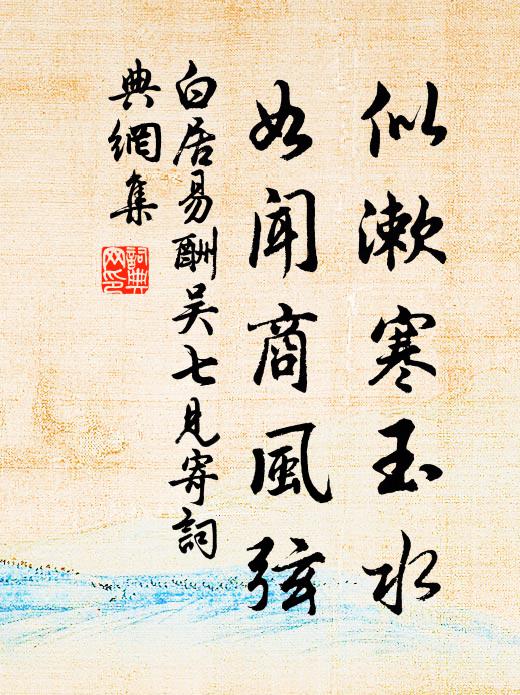 似漱寒玉水
如闻商風弦
白居易酬吴七見寄詞
典網集
詞典
网印